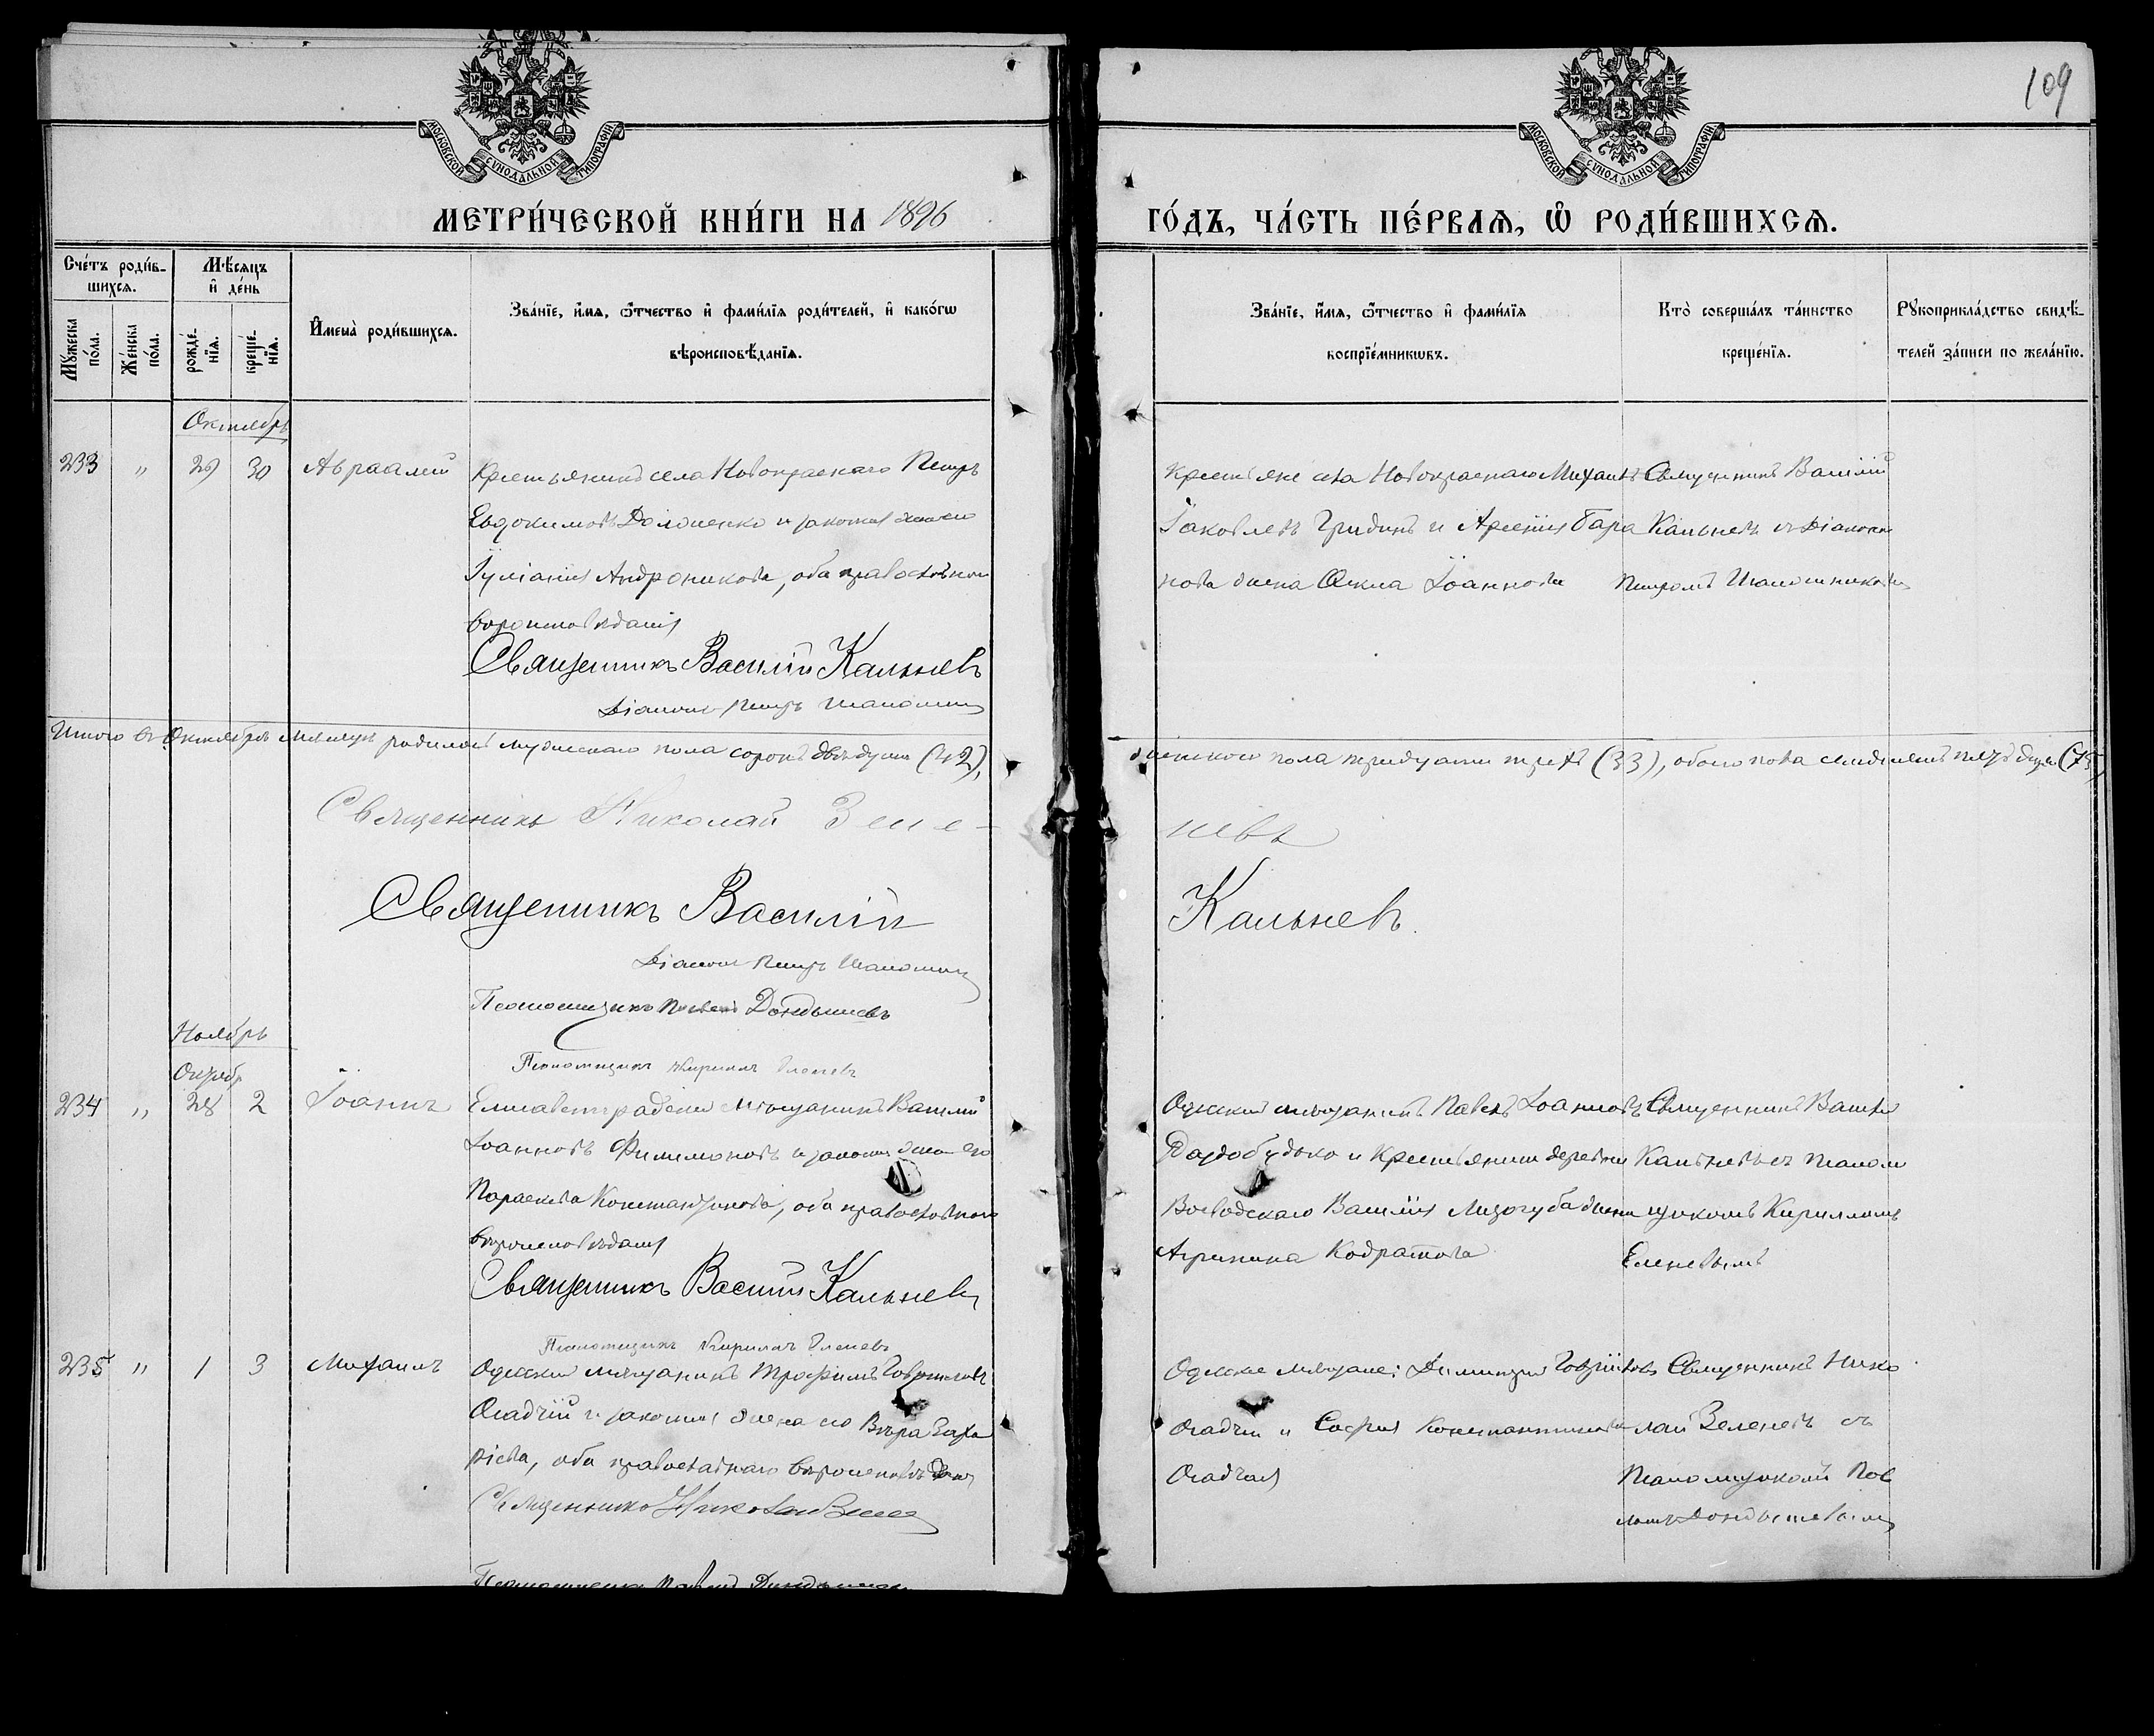 109
МОСКОВСКОЙ СѴНОДАЛЬНОЙ ТИПОГРАФІИ
МОСКОВСКОЙ СѴНОДАЛЬНОЙ ТИПОГРАФІИ
МЕТРИ́ЧЕСКОЙ КНИ́ГИ НА 1896
ГО́ДЪ, ЧА́СТЬ ПЕ́РВАЯ, Ѡ РОДИ́ВШИХСЯ.
Сче́тъ роди́в-
шихся.
Мѣ́сяцъ
и҆ де́нь
Мꙋ́жеска
по́ла.
Же́нска
по́ла.
рожде́-
нїя.
креще́-
нїя.
И҆мена̀ роди́вшихся.
Зва́нїе, и҆́мя, ѻ҆́тчество и҆ фами́лїя роди́телей, и҆ како́гѡ
вѣроисповѣ́данїя.
Зва́нїе, и҆́мя, ѻ҆́тчество и҆ фами́лїя
воспрїе́мникѡвъ.
Кто̀ соверша́лъ та́инство
креще́нїя.
Рꙋкоприкла́дство свидѣ́-
телей за́писи по жела́нїю.
Октябрь
233 " 29 30 Авраамій Крестьянинъ села Новокраснаго Петръ
Евдокимовъ и законная жена его
Іуліанія Андроникова, оба православнаго
вѣроисповѣданія
Священникъ Василій Кальневъ
Діаконъ Петръ
Крестьяне села Новокраснаго Михаилъ
Іаковлевъ Гридинъ и
жена Іоаннова
Священникъ Василій
Кальневъ съ Діакономъ
Петромъ
Итого въ Октябрѣ мѣсяцѣ родилось мужескаго пола сорокъ двѣ души (42),
женскаго пола тридцать три (33), обоего пола семьдесятъ пять душъ (75)
Священникъ Николай Зеле-
невъ
Священникъ Василій
Кальневъ.
Діаконъ Петръ
Псаломщикъ Павелъ Дондышевъ
Псаломщикъ Кириллъ Еленевъ
Ноябрь
Октябр
234 " 28 2 Іоаннъ Елисаветградскій мѣщанинъ Василій
Іоанновъ Филимоновъ и законная жена его
Параскева Константинова, оба православнаго
вѣроисповѣданія
Священникъ Василій Кальневъ
Псаломщикъ Кириллъ Еленевъ
Одесскій мѣщанинъ Павелъ Іоанновъ
Раздобудько и Крестьянина деревни
Воеводскаго Василія Лизогуба жена
Агрипина Кодратова
Священникъ Василій
Кальневъ съ псалом
щикомъ Кирилломъ
Еленевымъ
235 " 1 3 Михаилъ Одесскій мѣщанинъ Трофимъ Гавріиловъ
Осадчій и законная жена его Вѣра Заха
ріева, оба православнаго вѣроисповѣданія
Священникъ Николай Зеленевъ
Одесскіе мѣщане: Димитрій Гавріиловъ
Осадчій и Софія Константинова
Осадчая
Священникъ Нико
лай Зеленевъ съ
Псаломщикомъ Пав
ломъ Дондышевымъ
Псаломщикъ Павелъ Дондышевъ